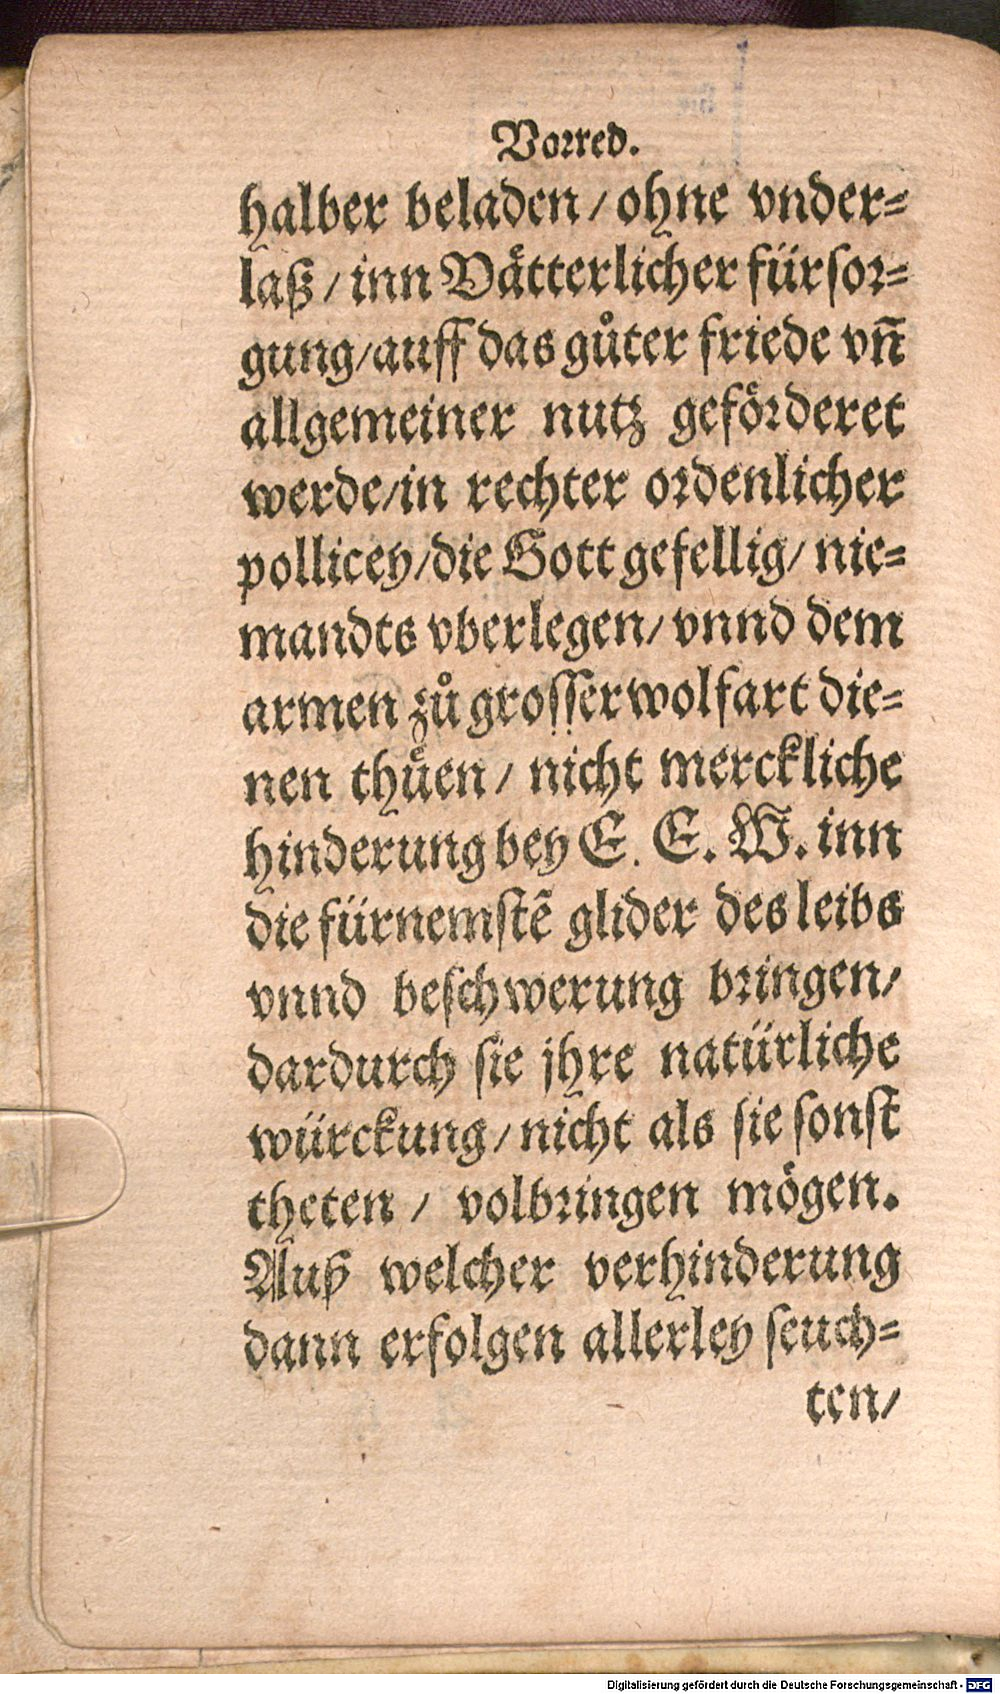 Vorred.
halber beladen / ohne vnder⸗
laß / inn Vaͤtterlicher fürsor⸗
gung/auff das guͦter friede vn̄
allgemeiner nutz geförderet
werde/in rechter ordenlicher
pollicey/die Gott gefellig/ nie⸗
mandts vberlegen/ vnnd dem
armen zuͦ grosser wolfart die⸗
nen thuͤen / nicht merckliche
hinderung bey E. E. W. inn
die fürnemstē glider des leibs
vnnd beschwerung bringen/
dardurch sie jhre natürliche
würckung/nicht als sie sonst
theten / volbringen mögen.
Auß welcher verhinderung
dann erfolgen allerley seuch⸗
ten/
Digitalisierung gefördert durch die Deutsche Forschungsgemeinschaft - DFG